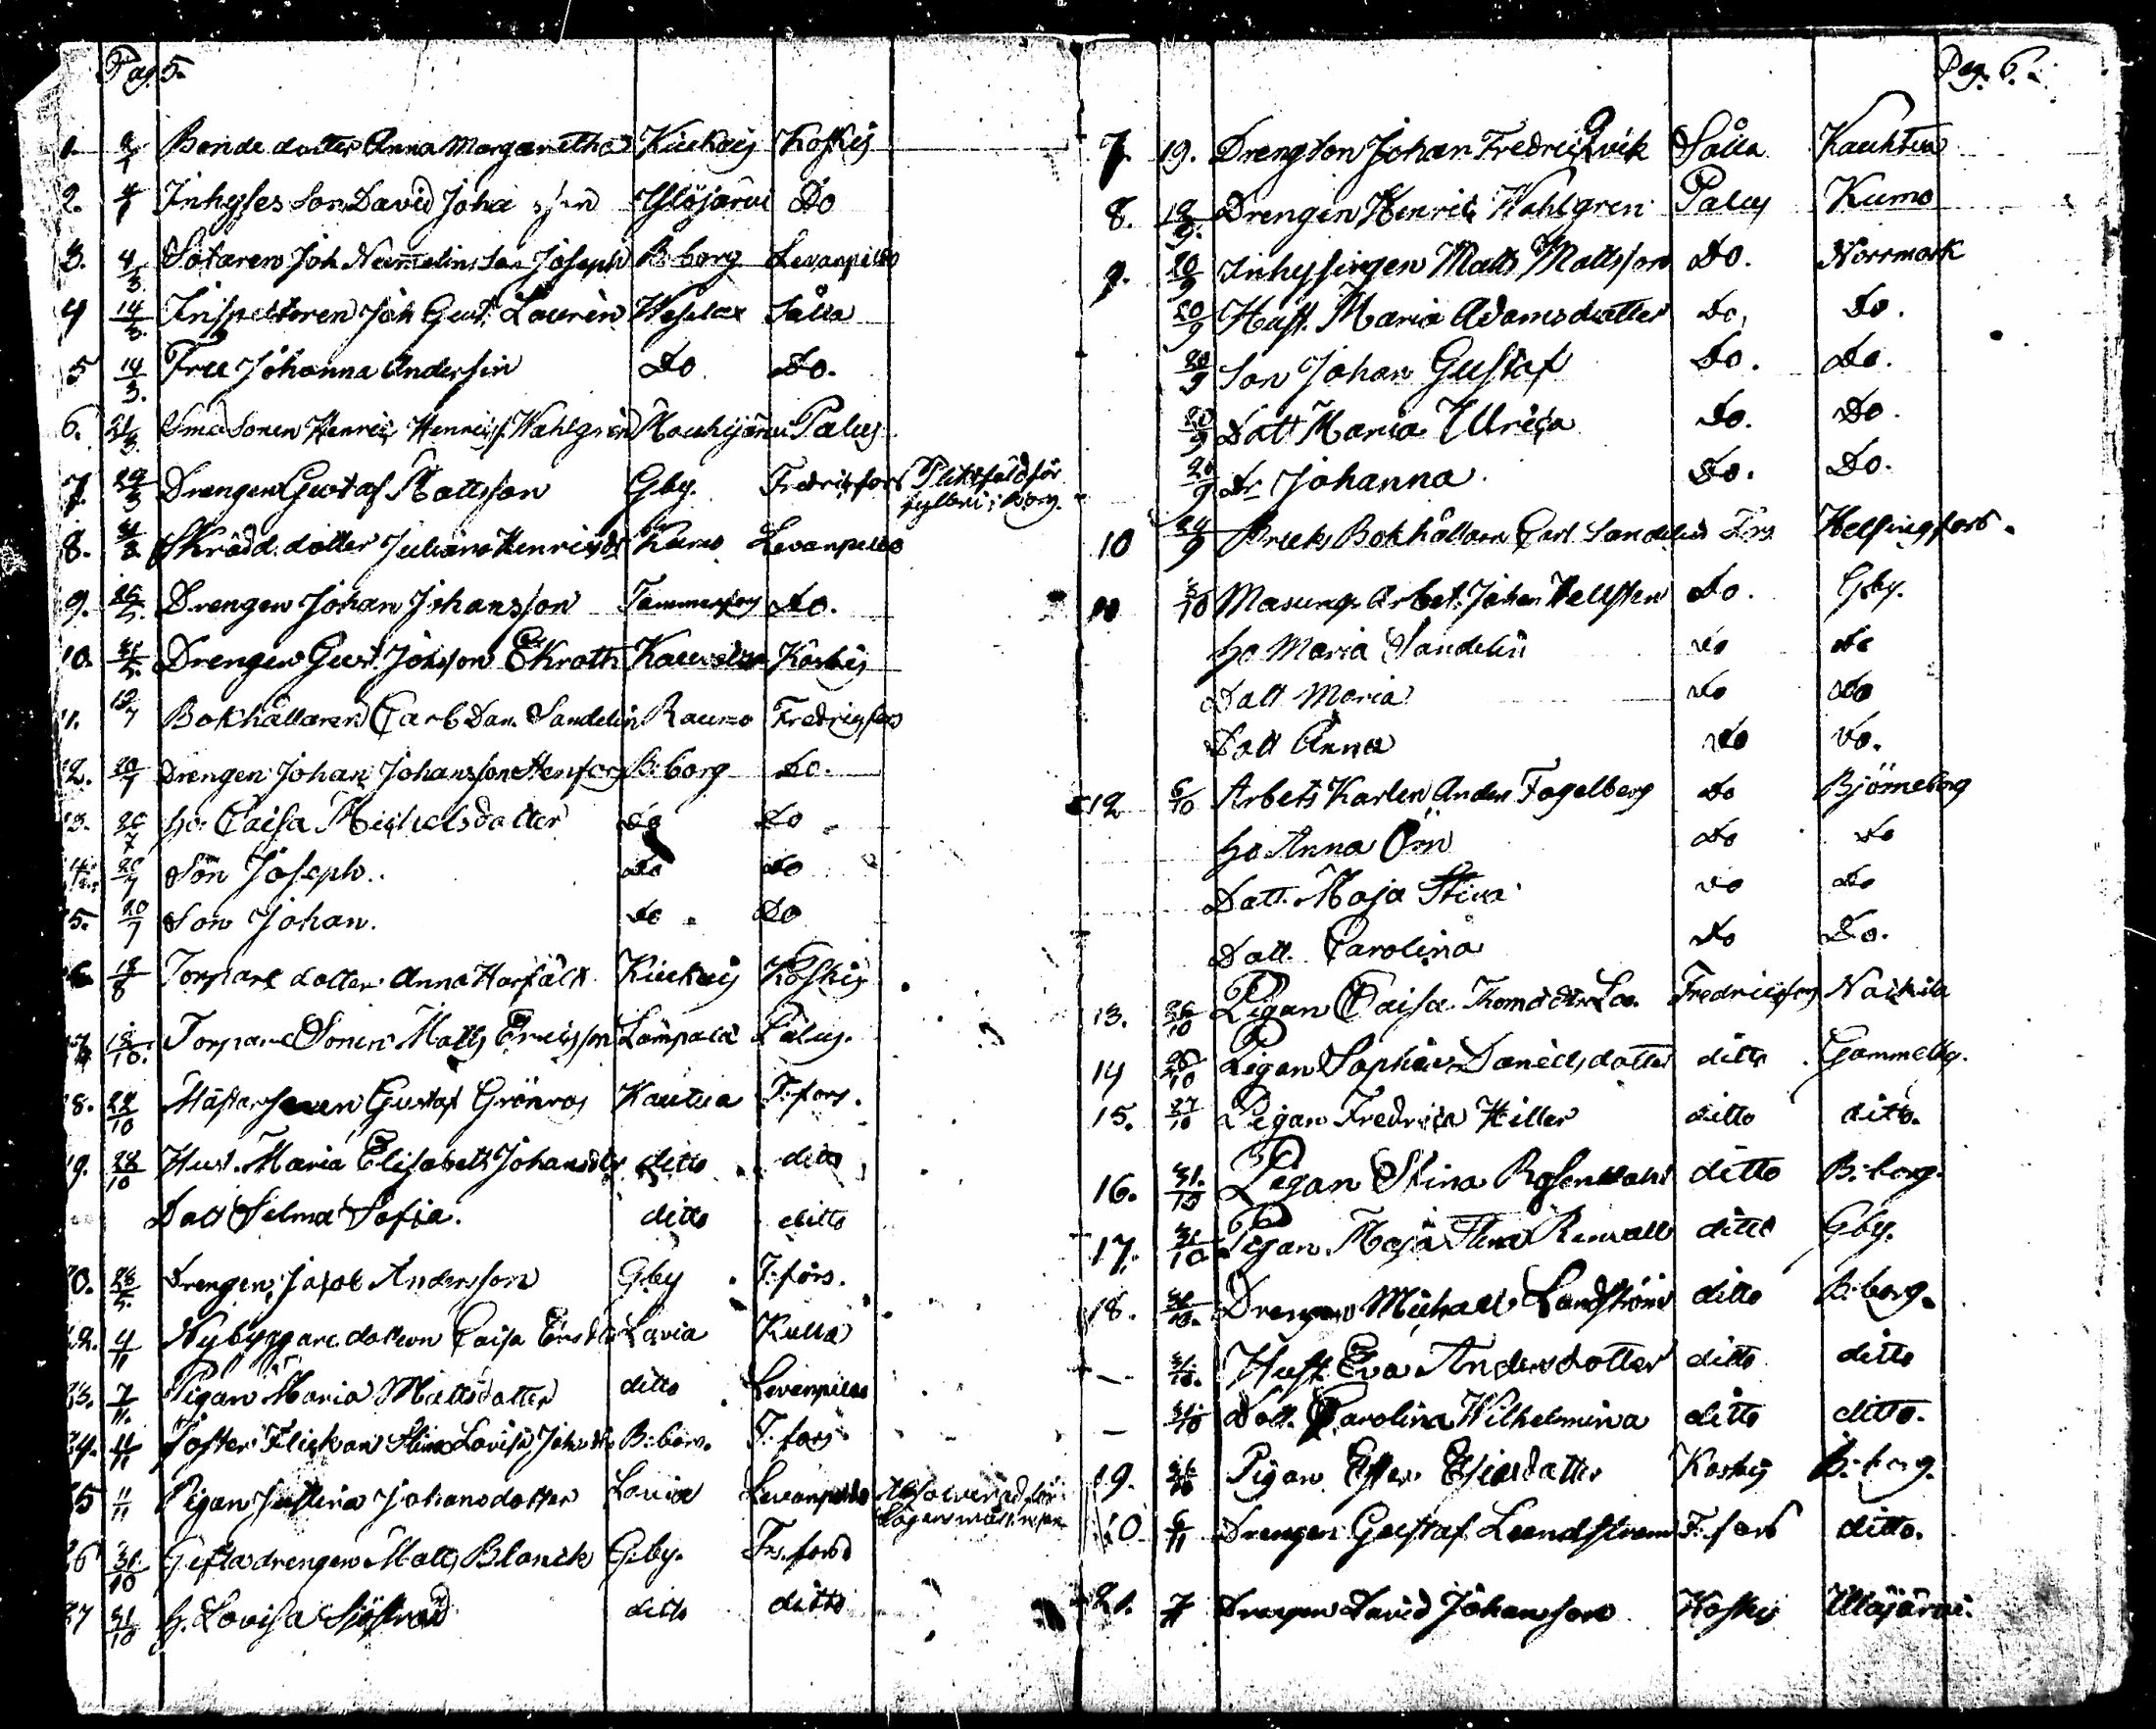 Pag. 5.
1. 2/1 Bonde dotter Anna Margaretha Kiukais Koskis
2. 4/1 Inhyses Son David Joha Ylöjärvi Do
3. 4/3. Sotaren Joh Nummelins Son Joseph B:borg Levanpelto
4 14/3. Inspectoren Joh Gust. Lauren Såtta
5 14/3. Fru Johanna Andersin Do Do.
6. 21/3. Små Sonen Henric Henricss. Wahlgren Mouhijärvi Palus
7. 29/3 Drengen Gustaf Mattsson Gby. Fredricsfors Pliktfäld för
fylleri i Borg.
8. Skrädd. dotter Juliana Henricsdr Kumo Levanpelto
9. 26/5. Drengen Johan Johansson Tammerfors Do.
10. 31/5. Drengen Gust. Johsson Ekroth Kauvatsa Koskis
11. 12/7 Bokhållaren Carl Dan. Sandelin Raumo Fredricsfors
12. 20/7 Drengen Johan Johansson B:borg Do.
13. 20/7 ho. Caisa Michelsdotter Do Do
14. 20/7 Son Joseph. Do Do
15. 20/7 Son Johan. Do Do
18/8 Torpare dotter Anna Harfält Kiukais Koskis
17 18/10. Torpare Sonen Matts Ericsson Lampala Palus.
18. 28/10 Gustaf Grönros Kautua F:fors.
19. 28/10 Hust. Maria Elisabeth Johansdr ditto ditto
Dott Selma Sofia. ditto ditto
20. 28/5. Drengen Jacob Andersson Gby F:fors.
22. 4/11 Nybyggare dottern Caisa Lavia Kulla
23. 7/11. Pigan Maria Mattsdotter ditto Levanpelto
24. 11/11 Foster Flickan Stina Lovisa B:borg. F:fors
25 11/11 Pigan Justina Johansdotter Lavia Levanpelto
26 31/10 Gifta drengen Matts Blanck Gby. Fr.fors
27 31/10 h. Lovisa Sjöstrand ditto ditto
Pag. 6.
7. 19. Drengson Johan Fredric Qvik Såtta Kauhtua
8. 19/9. Drengen Henric Wahlgren Palus Kumo
9. 20/9 Inhysingen Matts Mattsson Do. Norrmark
20/9 Hust. Maria Adamsdotter Do. Do.
20/9 Son Johan Gustaf Do. Do.
20/9 Dott Maria Ulrica Do. Do.
20/9 Dr Johanna. Do. Do.
10 24/9 Bruks Bokhållaren Carl Sandelin Frs Helsingfors.
11 3/10 Masungs Arbet. Johan Hellsten Do. Gby.
ho Maria Sandelin Do Do
Dott Maria Do Do
Dott Anna Do Do.
12 6/10 Arbets Karlen Anders Fogelberg Do Björneborg
ho Anna Örn Do Do
Dott. Maja Stina Do Do
Dott. Carolina Do Do.
13. 26/10 Pigan Caisa Fredricsfors Nackila
14 26/10 Pigan Sophia Danielsdotter ditto Gammelby.
15. 27/10 Pigan Fredrica Hiller ditto ditto.
16. 31./10 Pigan Stina Rosenvall ditto B:borg.
17. 31/10 Pigan Maja Stina Renvall ditto Gby.
18. 31/10. Drengen Michael Landström ditto B:borg.
— 31/10. Hust Eva Andersdotter ditto ditto
— 31/10 Dott. Carolina Wilhelmina ditto ditto.
19. Pigan Ester Esiasdotter Koskis B:borg.
20 6/11 Drengen Gustaf Lundstrom F:fors ditto.
21. 7/11 Drengen David Johansson Koskis Ulöjärvi.